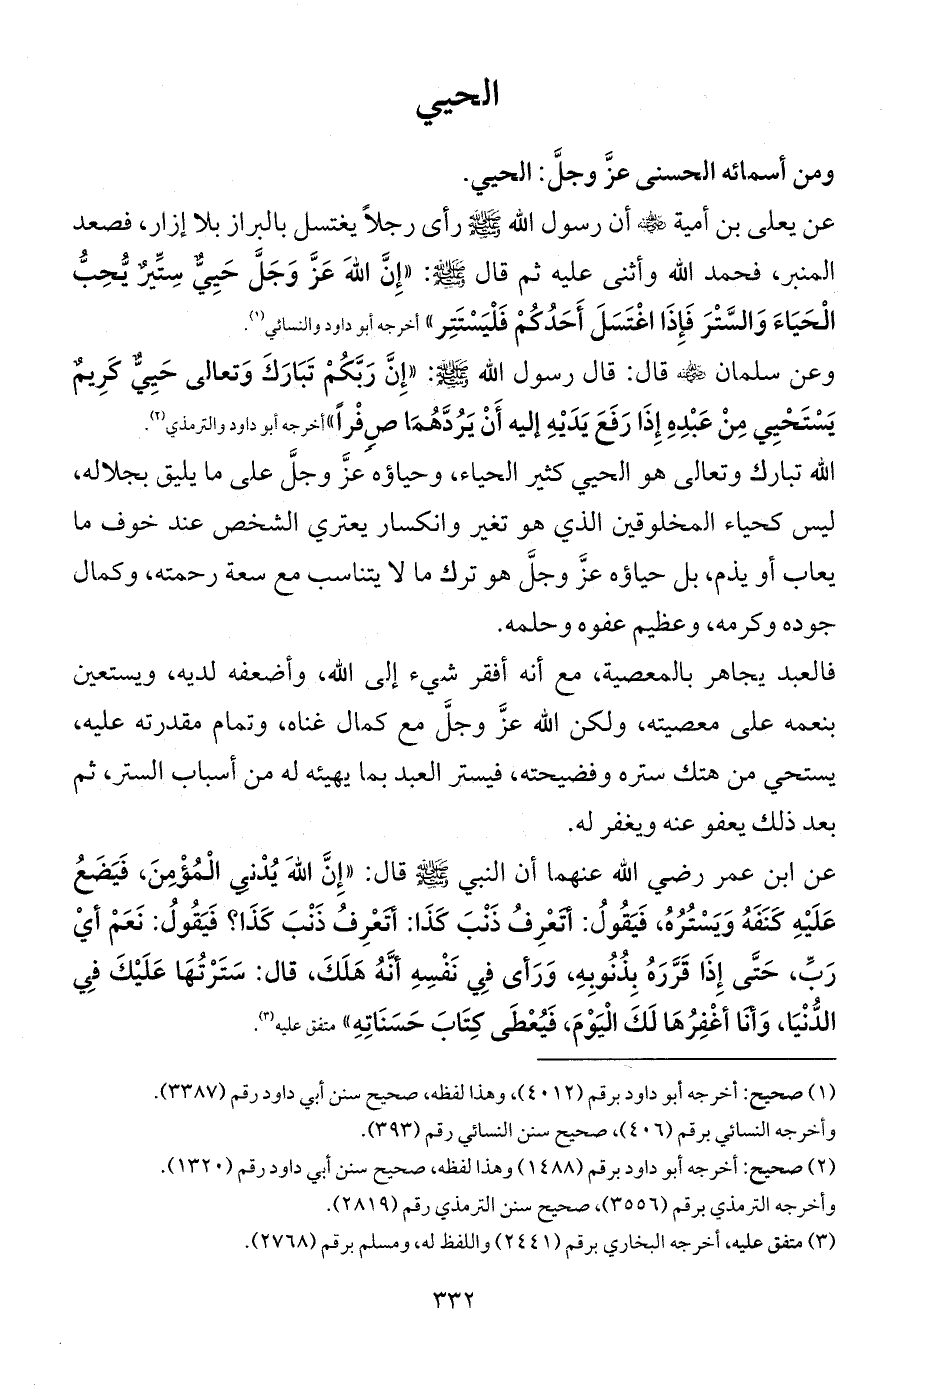 الحيي
ومن أسمائه الحسنى عزَّ وجلَّ: الحيي.
عن يعلى بن أمية رضي الله عنه أن رسول الله ﷺ رأى رجلاً يغتسل بالبراز بلا إزار، فصعد
المنبر، فحمد الله وأثنى عليه ثم قال ﷺ: «إِنَّ اللهَ عَزَّ وَجَلَّ حَيِيٌّ سِتِّيرٌ يُحِبُّ
الْحَيَاءَ وَالسَّتْرَ فَإِذَا اغْتَسَلَ أَحَدُكُمْ فَلْيَسْتَتِر» أخرجه أبو داود والنسائي(١).
وعن سلمان رضي الله عنه قال: قال رسول الله ﷺ: «إِنَّ رَبَّكُمْ تَبَارَكَ وَتعالى حَيِيٌّ كَرِيمٌ
يَسْتَحْيِي مِنْ عَبْدِهِ إِذَا رَفَعَ يَدَيْهِ إليه أَنْ يَرُدَّهُمَا صِفْراً» أخرجه أبو داود والترمذي(٢).
الله تبارك وتعالى هو الحيي كثير الحياء، وحياؤه عزَّ وجلَّ على ما يليق بجلاله،
ليس كحياء المخلوقين الذي هو تغير وانكسار يعتري الشخص عند خوف ما
يعاب أو يذم، بل حياؤه عزَّ وجلَّ هو ترك ما لا يتناسب مع سعة رحمته، وكمال
جوده وكرمه، وعظيم عفوه وحلمه.
فالعبد يجاهر بالمعصية، مع أنه أفقر شيء إلى الله، وأضعفه لديه، ويستعين
بنعمه على معصيته، ولكن الله عزَّ وجلَّ مع كمال غناه، وتمام مقدرته عليه،
يستحي من هتك ستره وفضيحته، فيستر العبد بما يهيئه له من أسباب الستر، ثم
بعد ذلك يعفو عنه ويغفر له.
عن ابن عمر رضي الله عنهما أن النبي ﷺ قال: «إِنَّ اللهَ يُدْني الْمُؤْمِنَ، فَيَضَعُ
عَلَيْهِ كَنَفَهُ وَيَسْتُرُهُ، فَيَقُولُ: أتَعْرِفُ ذَنْبَ كَذَا: أتَعْرِفُ ذَنْبَ كَذَا؟ فَيَقُولُ: نَعَمْ أيْ
رَبِّ، حَتَّى إِذَا قَرَّرَهُ بِذُنُوبِهِ، وَرَأى فِي نَفْسِهِ أنَّهُ هَلَكَ، قال: سَتَرْتُهَا عَلَيْكَ فِي
الدُّنْيَا، وَأنَا أغْفِرُهَا لَكَ الْيَوْمَ، فَيُعْطَى كِتَابَ حَسَنَاتِهِ» متفق عليه(٣).
(١) صحيح: أخرجه أبو داود برقم (٤٠١٢)، وهذا لفظه، صحيح سنن أبي داود رقم (٣٣٨٧).
وأخرجه النسائي برقم (٤٠٦)، صحيح سنن النسائي رقم (٣٩٣).
(٢) صحيح: أخرجه أبو داود برقم (١٤٨٨) وهذا لفظه، صحيح سنن أبي داود رقم (١٣٢٠).
وأخرجه الترمذي برقم (٣٥٥٦)، صحيح سنن الترمذي رقم (٢٨١٩).
(٣) متفق عليه، أخرجه البخاري برقم (٢٤٤١) واللفظ له، ومسلم برقم (٢٧٦٨).
٣٣٢